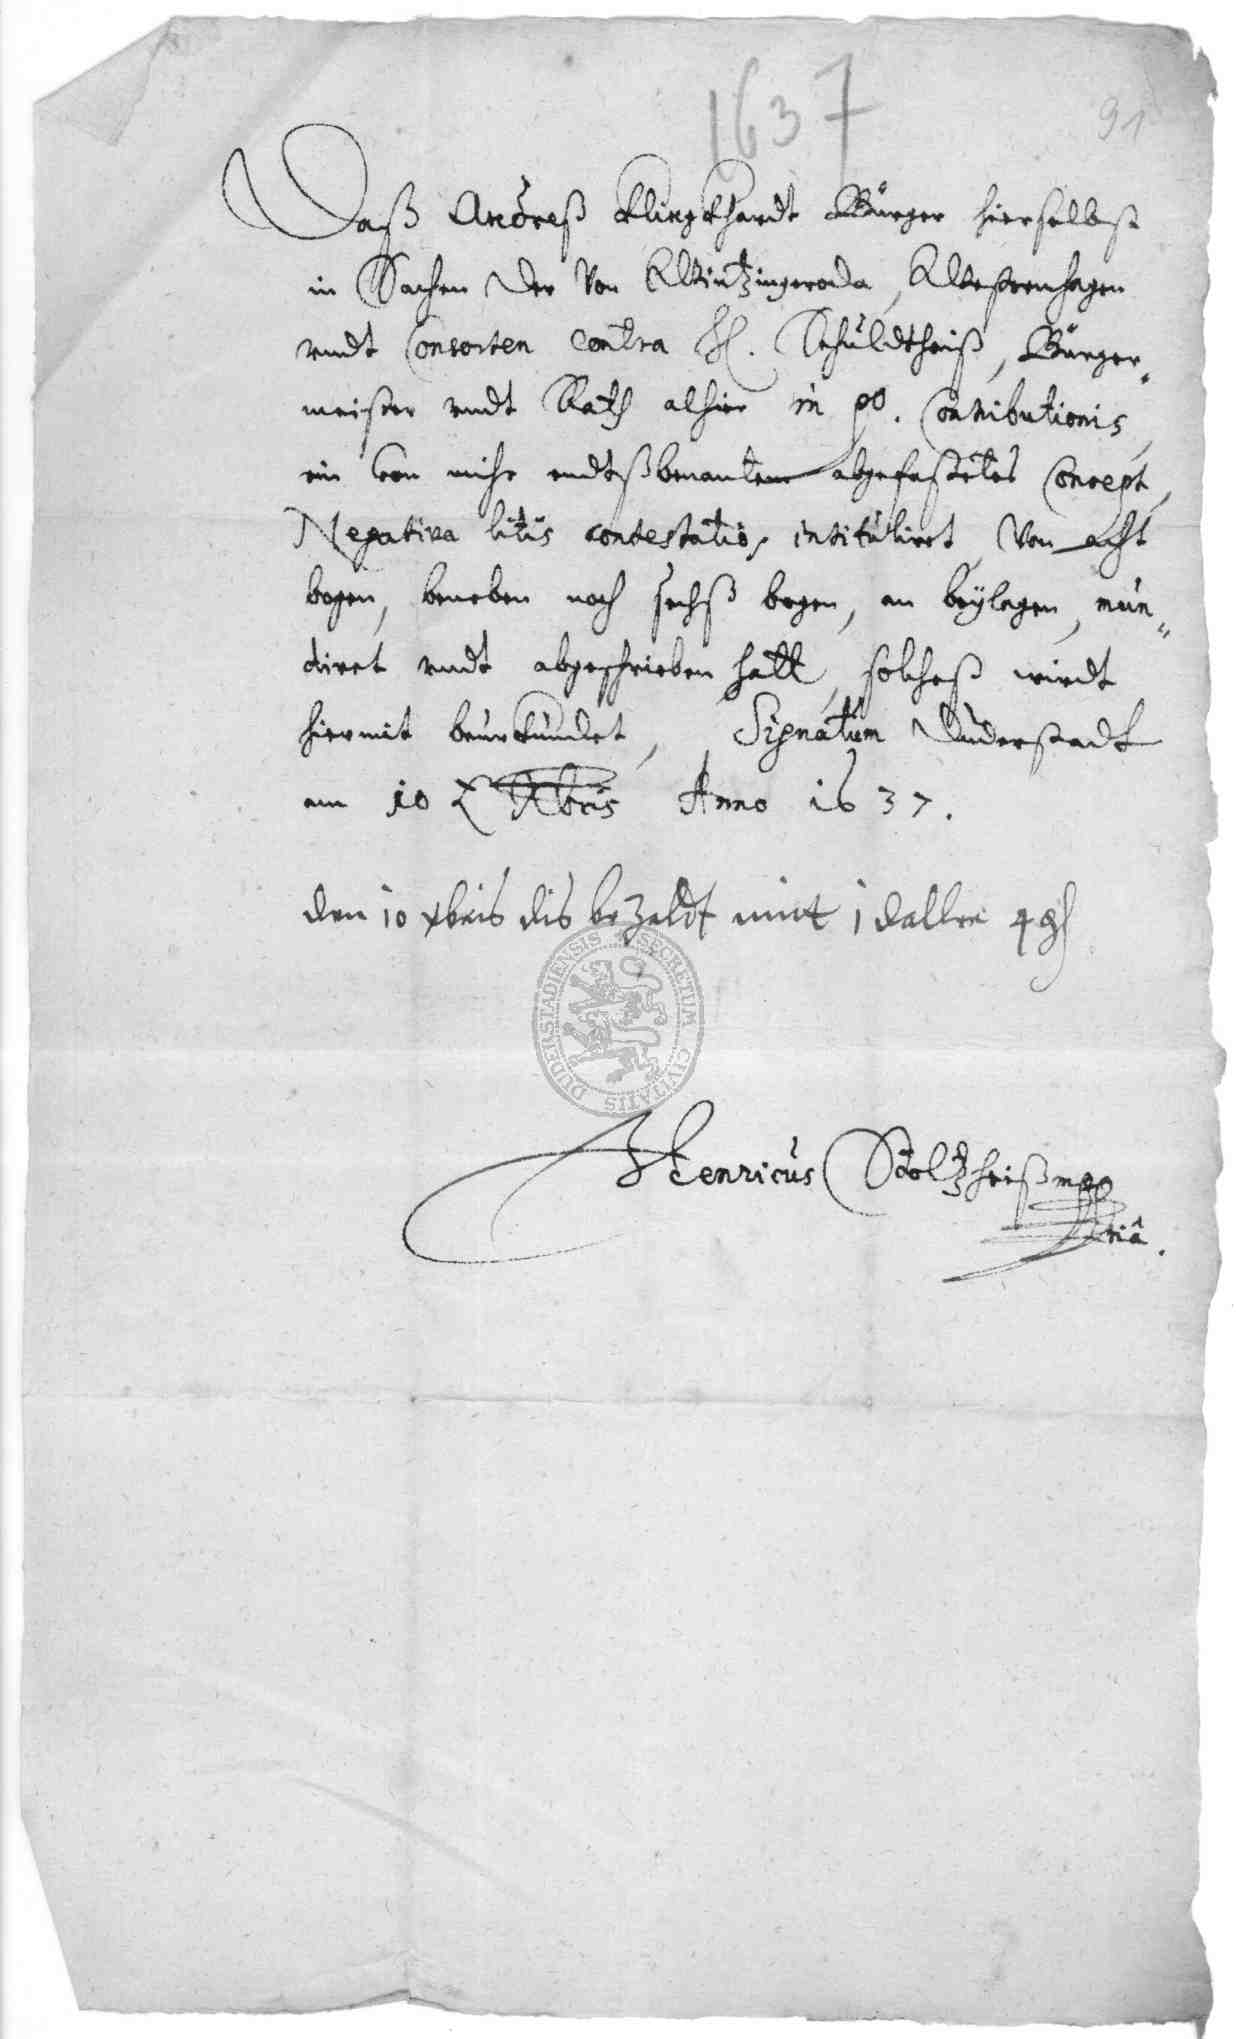 1637
91
Daß Andreß Klingkhardt Bürger hierselbst
in Sachen der von Westernhagen
undt Consorten Contra H. Schuldtheiß, Bürger„
meister undt Rath alhier in po. Contributionis,
ein von mihr endtßbenantem abgefastetes Concept,
Negativa litis contestatio, intituliret, von acht
bogen, beneben noch sechß bogen, an beÿlagen, mun„
diret undt abgeschrieben hatt, solcheß wirdt
hiermit beurkundet, Signatum Duderstadt
am 10 Xbris Anno 1637.
den 10 xbris dis bezaldt mit 1 daller 4 gl
SECRETUM CIVITATIS DUDERSTADIENSIS
Henricus Stoltzheiß mpp
riâ.